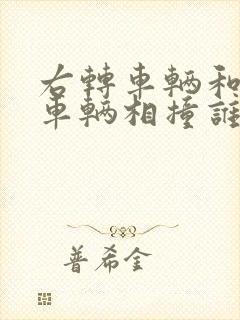 右轉車輛和
車輛相撞誰
普希金